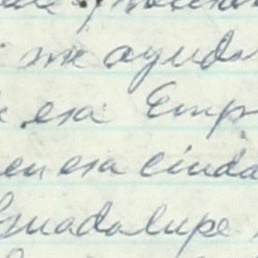 me ayuda
esa Emp
en esa ciuda
Guadalupe